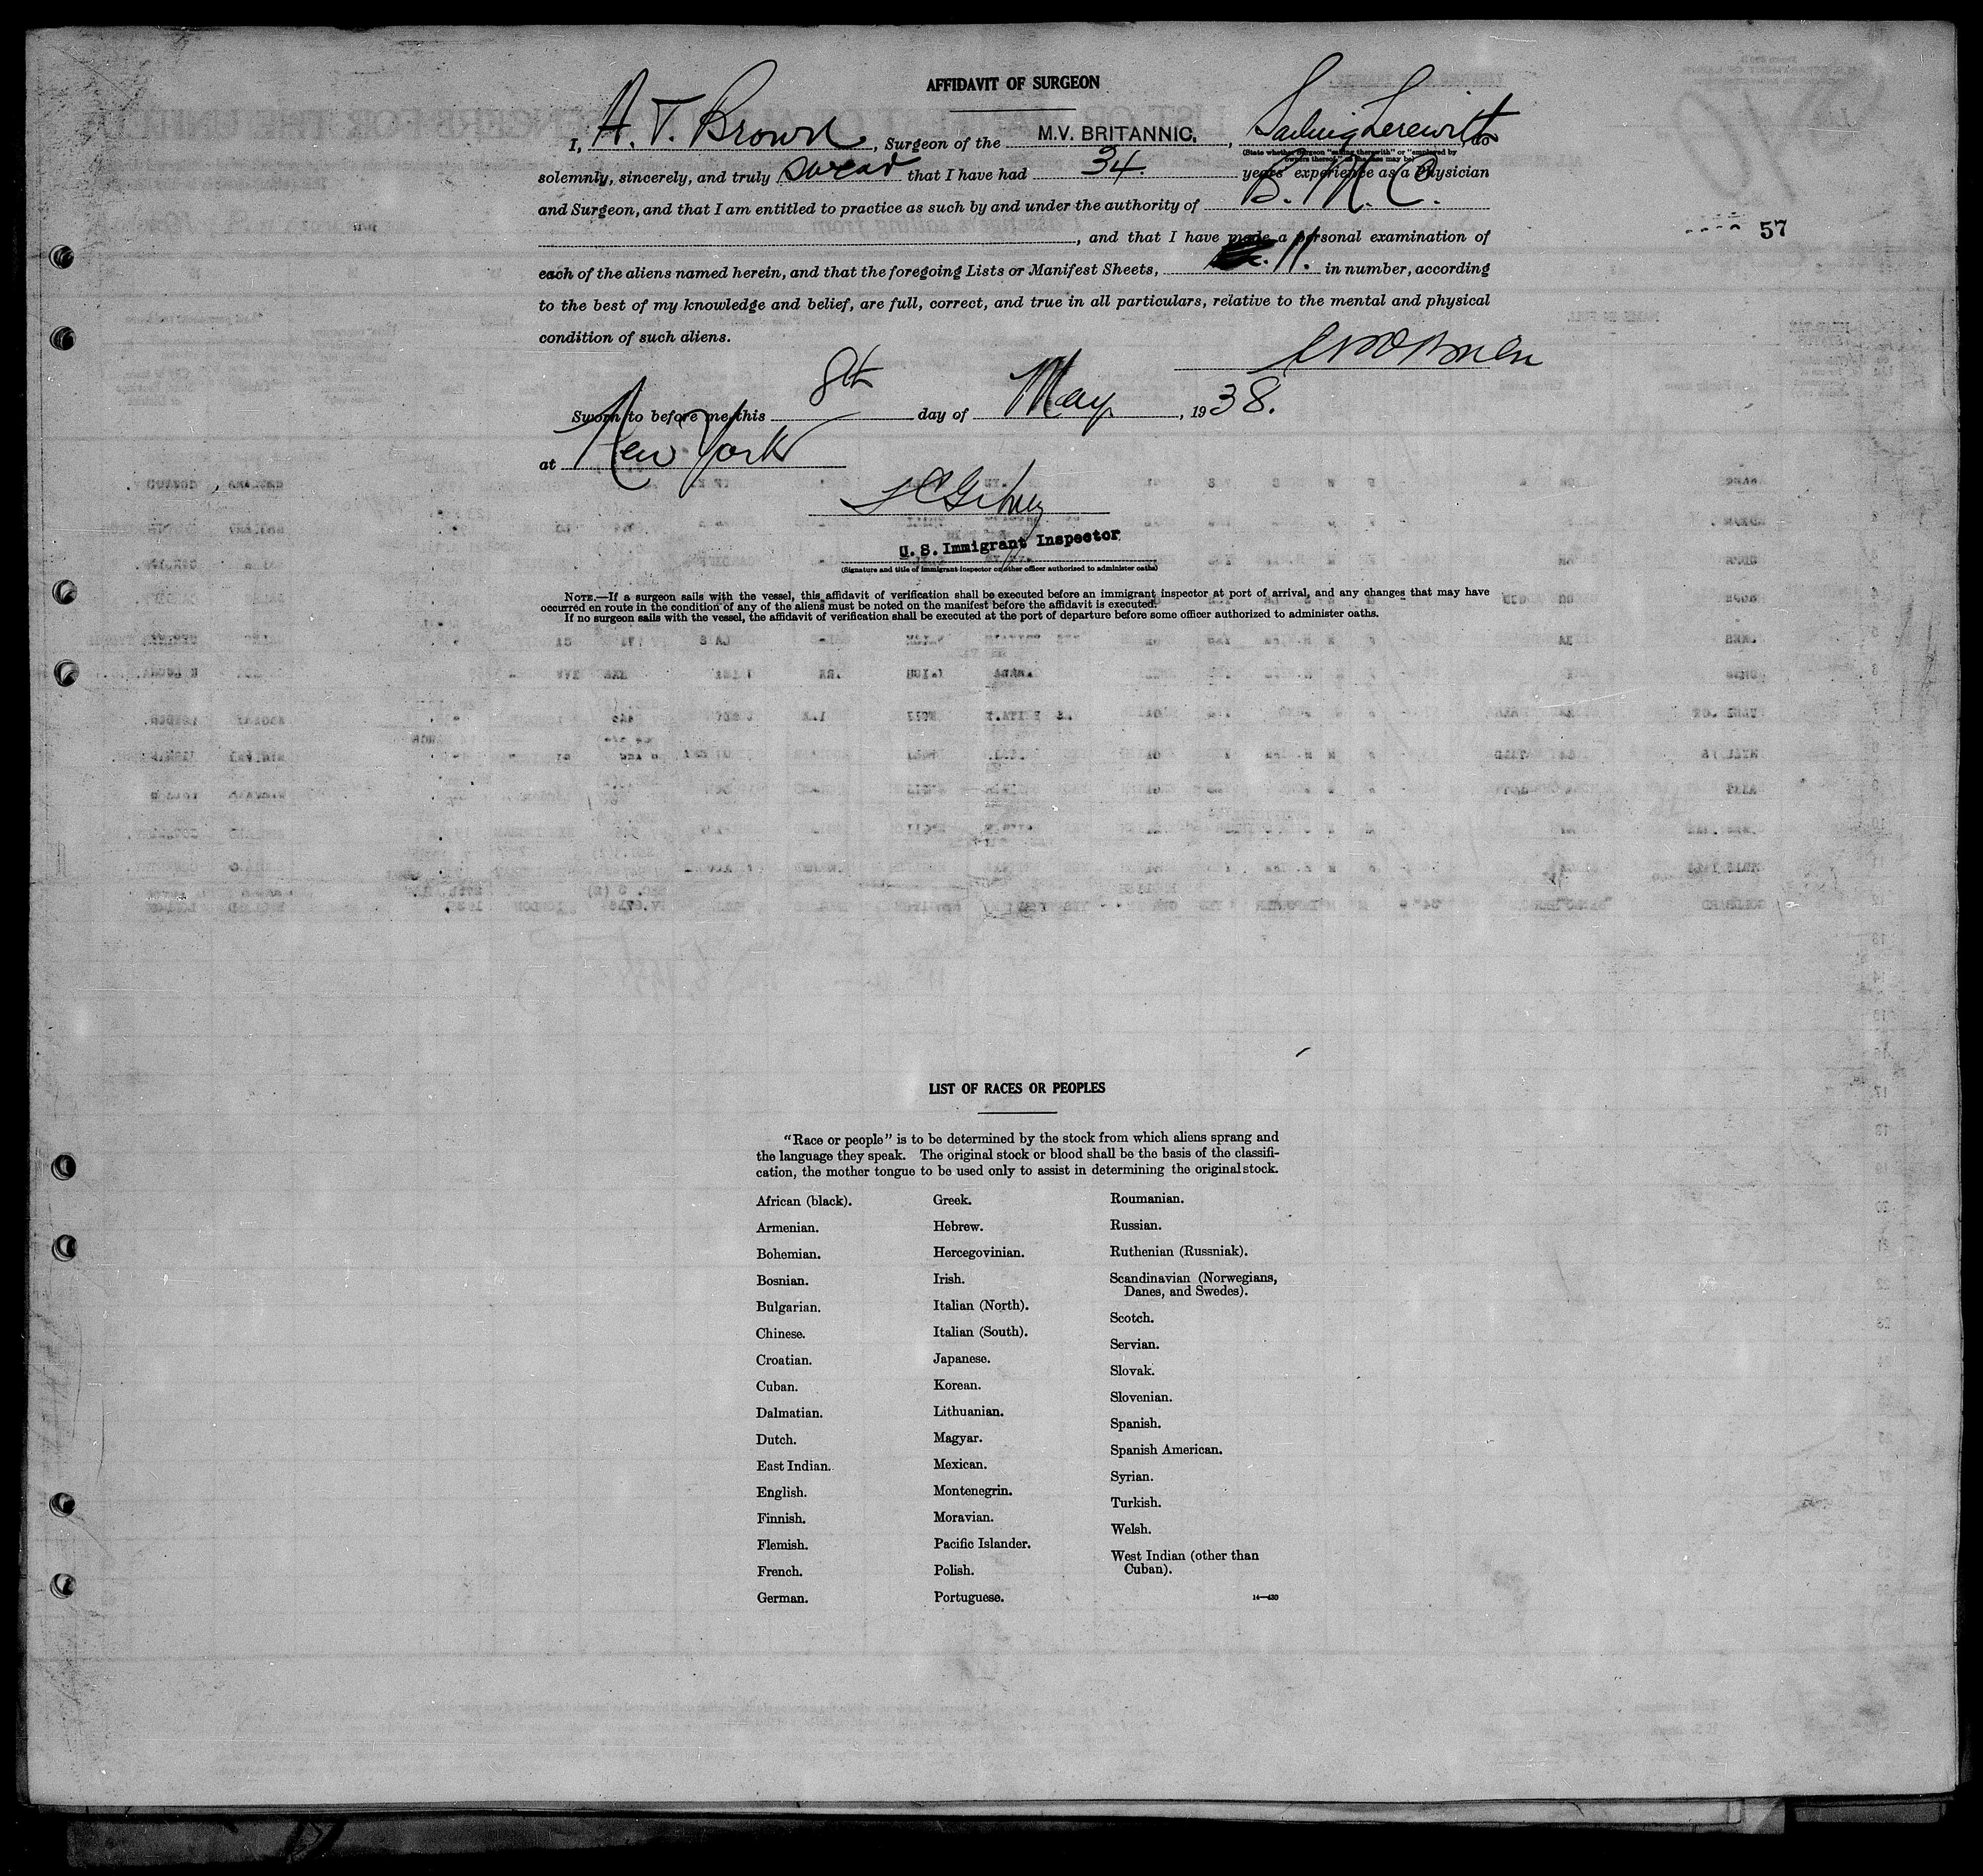 AFFIDAVIT OF SURGEON
I, A. T. Brown, Surgeon of the M.V. BRITANNIC, Sailing Therewith, do
(State whether Surgeon "sailing therewith" or "employed by owners thereof," as the case may be)
solemnly, sincerely, and truly swear that I have had 34. years' experience as a Physician
and Surgeon, and that I am entitled to practice as such by and under the authority of B. M. C.
57
, and that I have made a personal examination of
each of the aliens named herein, and that the foregoing Lists or Manifest Sheets, 11. in number, according
to the best of my knowledge and belief, are full, correct, and true in all particulars, relative to the mental and physical
condition of such aliens.
Sworn to before me this 8th day of May, 1938.
at New York
U. S. Immigrant Inspector
(Signature and title of immigrant inspector or other officer authorized to administer oaths)
NOTE.—If a surgeon sails with the vessel, this affidavit of verification shall be executed before an immigrant inspector at port of arrival, and any changes that may have
occurred en route in the condition of any of the aliens must be noted on the manifest before the affidavit is executed.
If no surgeon sails with the vessel, the affidavit of verification shall be executed at the port of departure before some officer authorized to administer oaths.
LIST OF RACES OR PEOPLES
"Race or people" is to be determined by the stock from which aliens sprang and
the language they speak. The original stock or blood shall be the basis of the classifi-
cation, the mother tongue to be used only to assist in determining the original stock.
African (black).
Armenian.
Bohemian.
Bosnian.
Bulgarian.
Chinese.
Croatian.
Cuban.
Dalmatian.
Dutch.
East Indian.
English.
Finnish.
Flemish.
French.
German.
Greek.
Hebrew.
Hercegovinian.
Irish.
Italian (North).
Italian (South).
Japanese.
Korean.
Lithuanian.
Magyar.
Mexican.
Montenegrin.
Moravian.
Pacific Islander.
Polish.
Portuguese.
Roumanian.
Russian.
Ruthenian (Russniak).
Scandinavian (Norwegians,
Danes, and Swedes).
Scotch.
Servian.
Slovak.
Slovenian.
Spanish.
Spanish American.
Syrian.
Turkish.
Welsh.
West Indian (other than
Cuban).
14—430